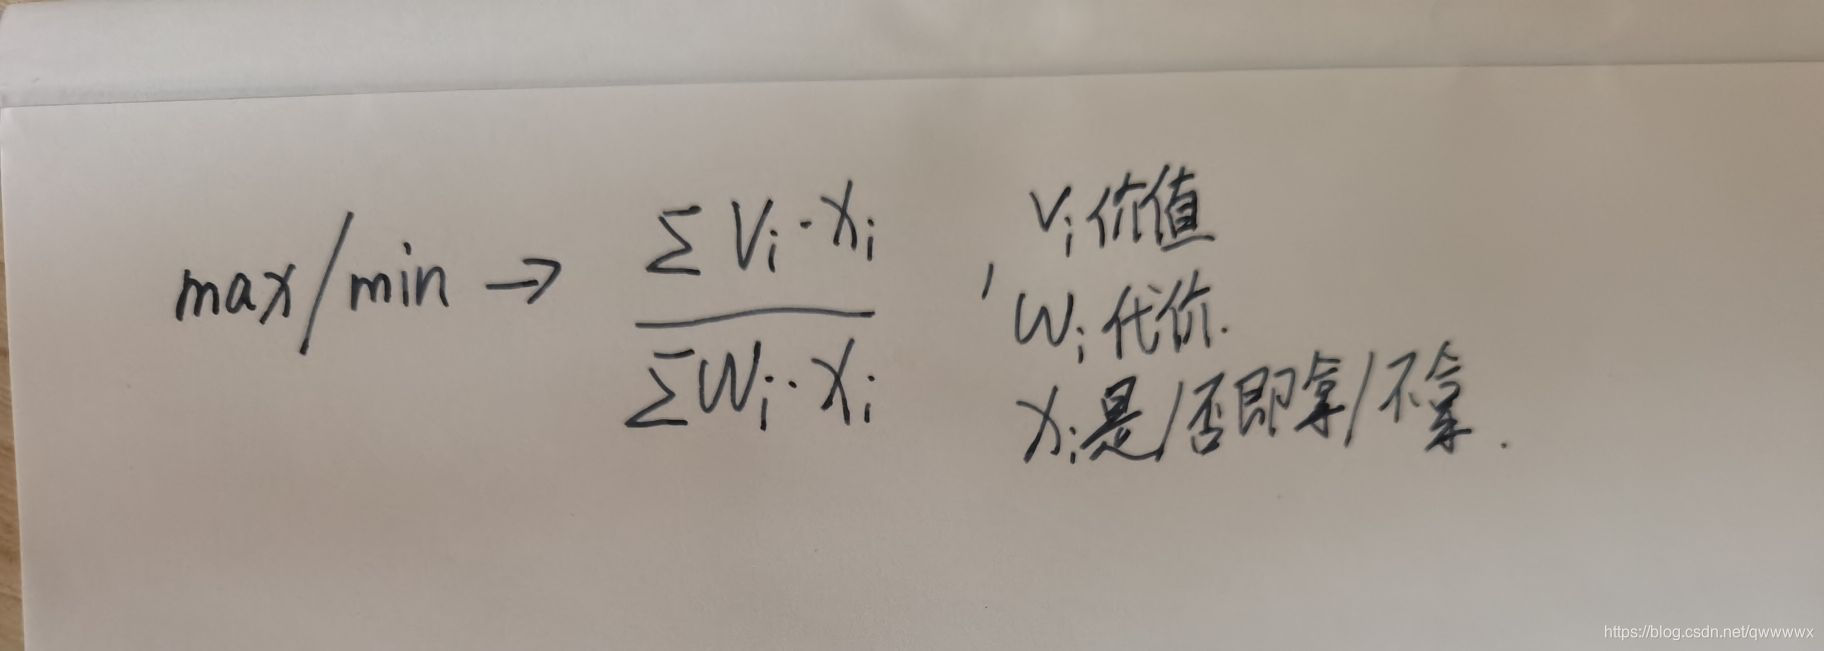 max/min → ΣVi·Xi
ΣWi·Xi
, Vi价值
Wi代价.
Xi是/否即拿/不拿.
https://blog.csdn.net/qwwwwx